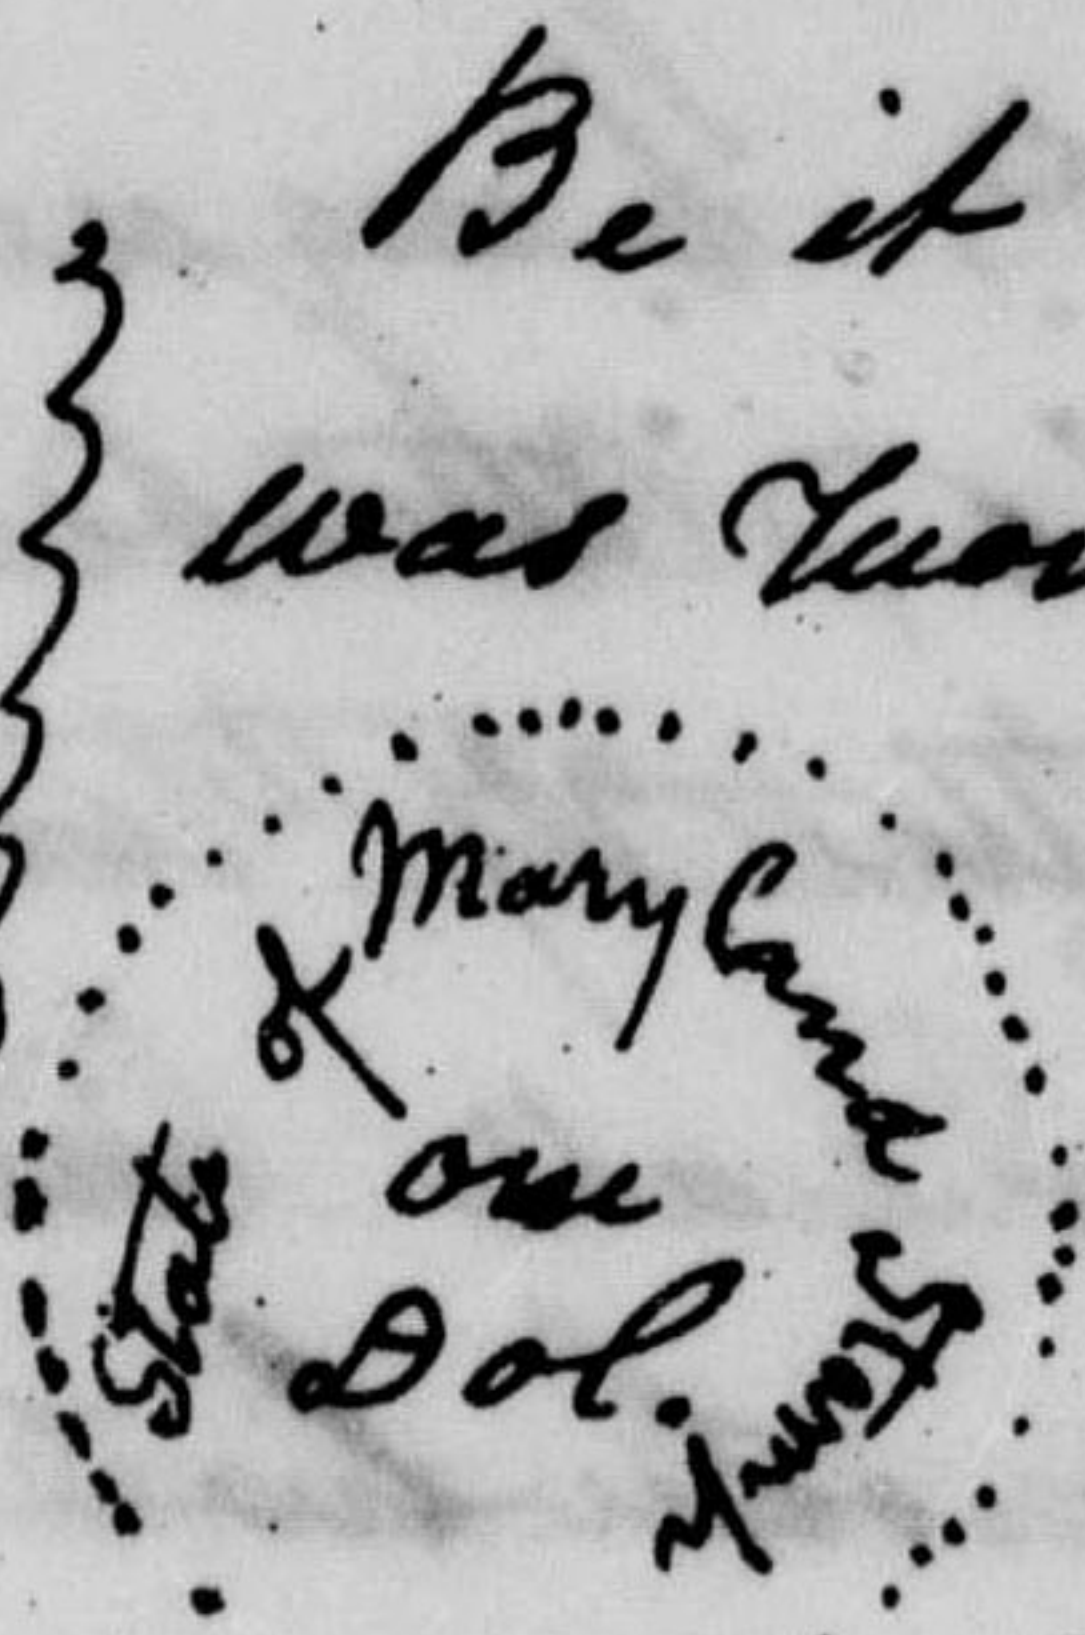 Be it
was
State of Maryland Stamp
one
Dol.